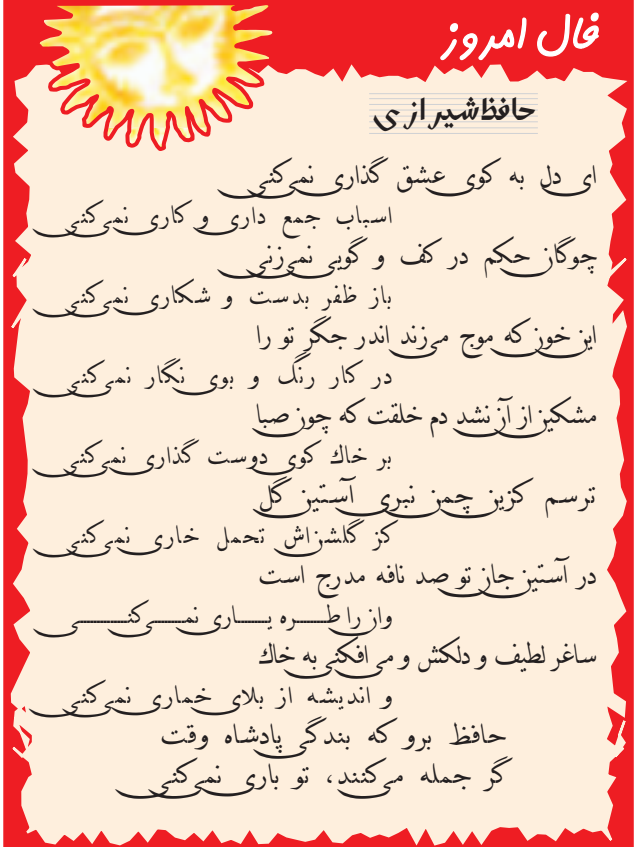 فال امروز
حافظ شیرازی
ای دل به کوی عشق گذاری نمی‌کنی
اسباب جمع داری و کاری نمی‌کنی
چوگان حکم در کف و گویی نمی‌زنی
باز ظفر بدست و شکاری نمی‌کنی
این خون که موج می‌زند اندر جگر تو را
در کار رنگ و بوی نگار نمی‌کنی
مشکین از آن نشد دم خلقت که چون صبا
بر خاک کوی دوست گذاری نمی‌کنی
ترسم کزین چمن نبری آستین گل
کز گلشن‌اش تحمل خاری نمی‌کنی
در آستین جان تو صد نافه مدرج است
وان را طره یاری نمی‌کنی
ساغر لطیف و دلکش و می افکنی به خاک
و اندیشه از بلای خماری نمی‌کنی
حافظ برو که بندگی پادشاه وقت
گر جمله می‌کنند، تو باری نمی‌کنی